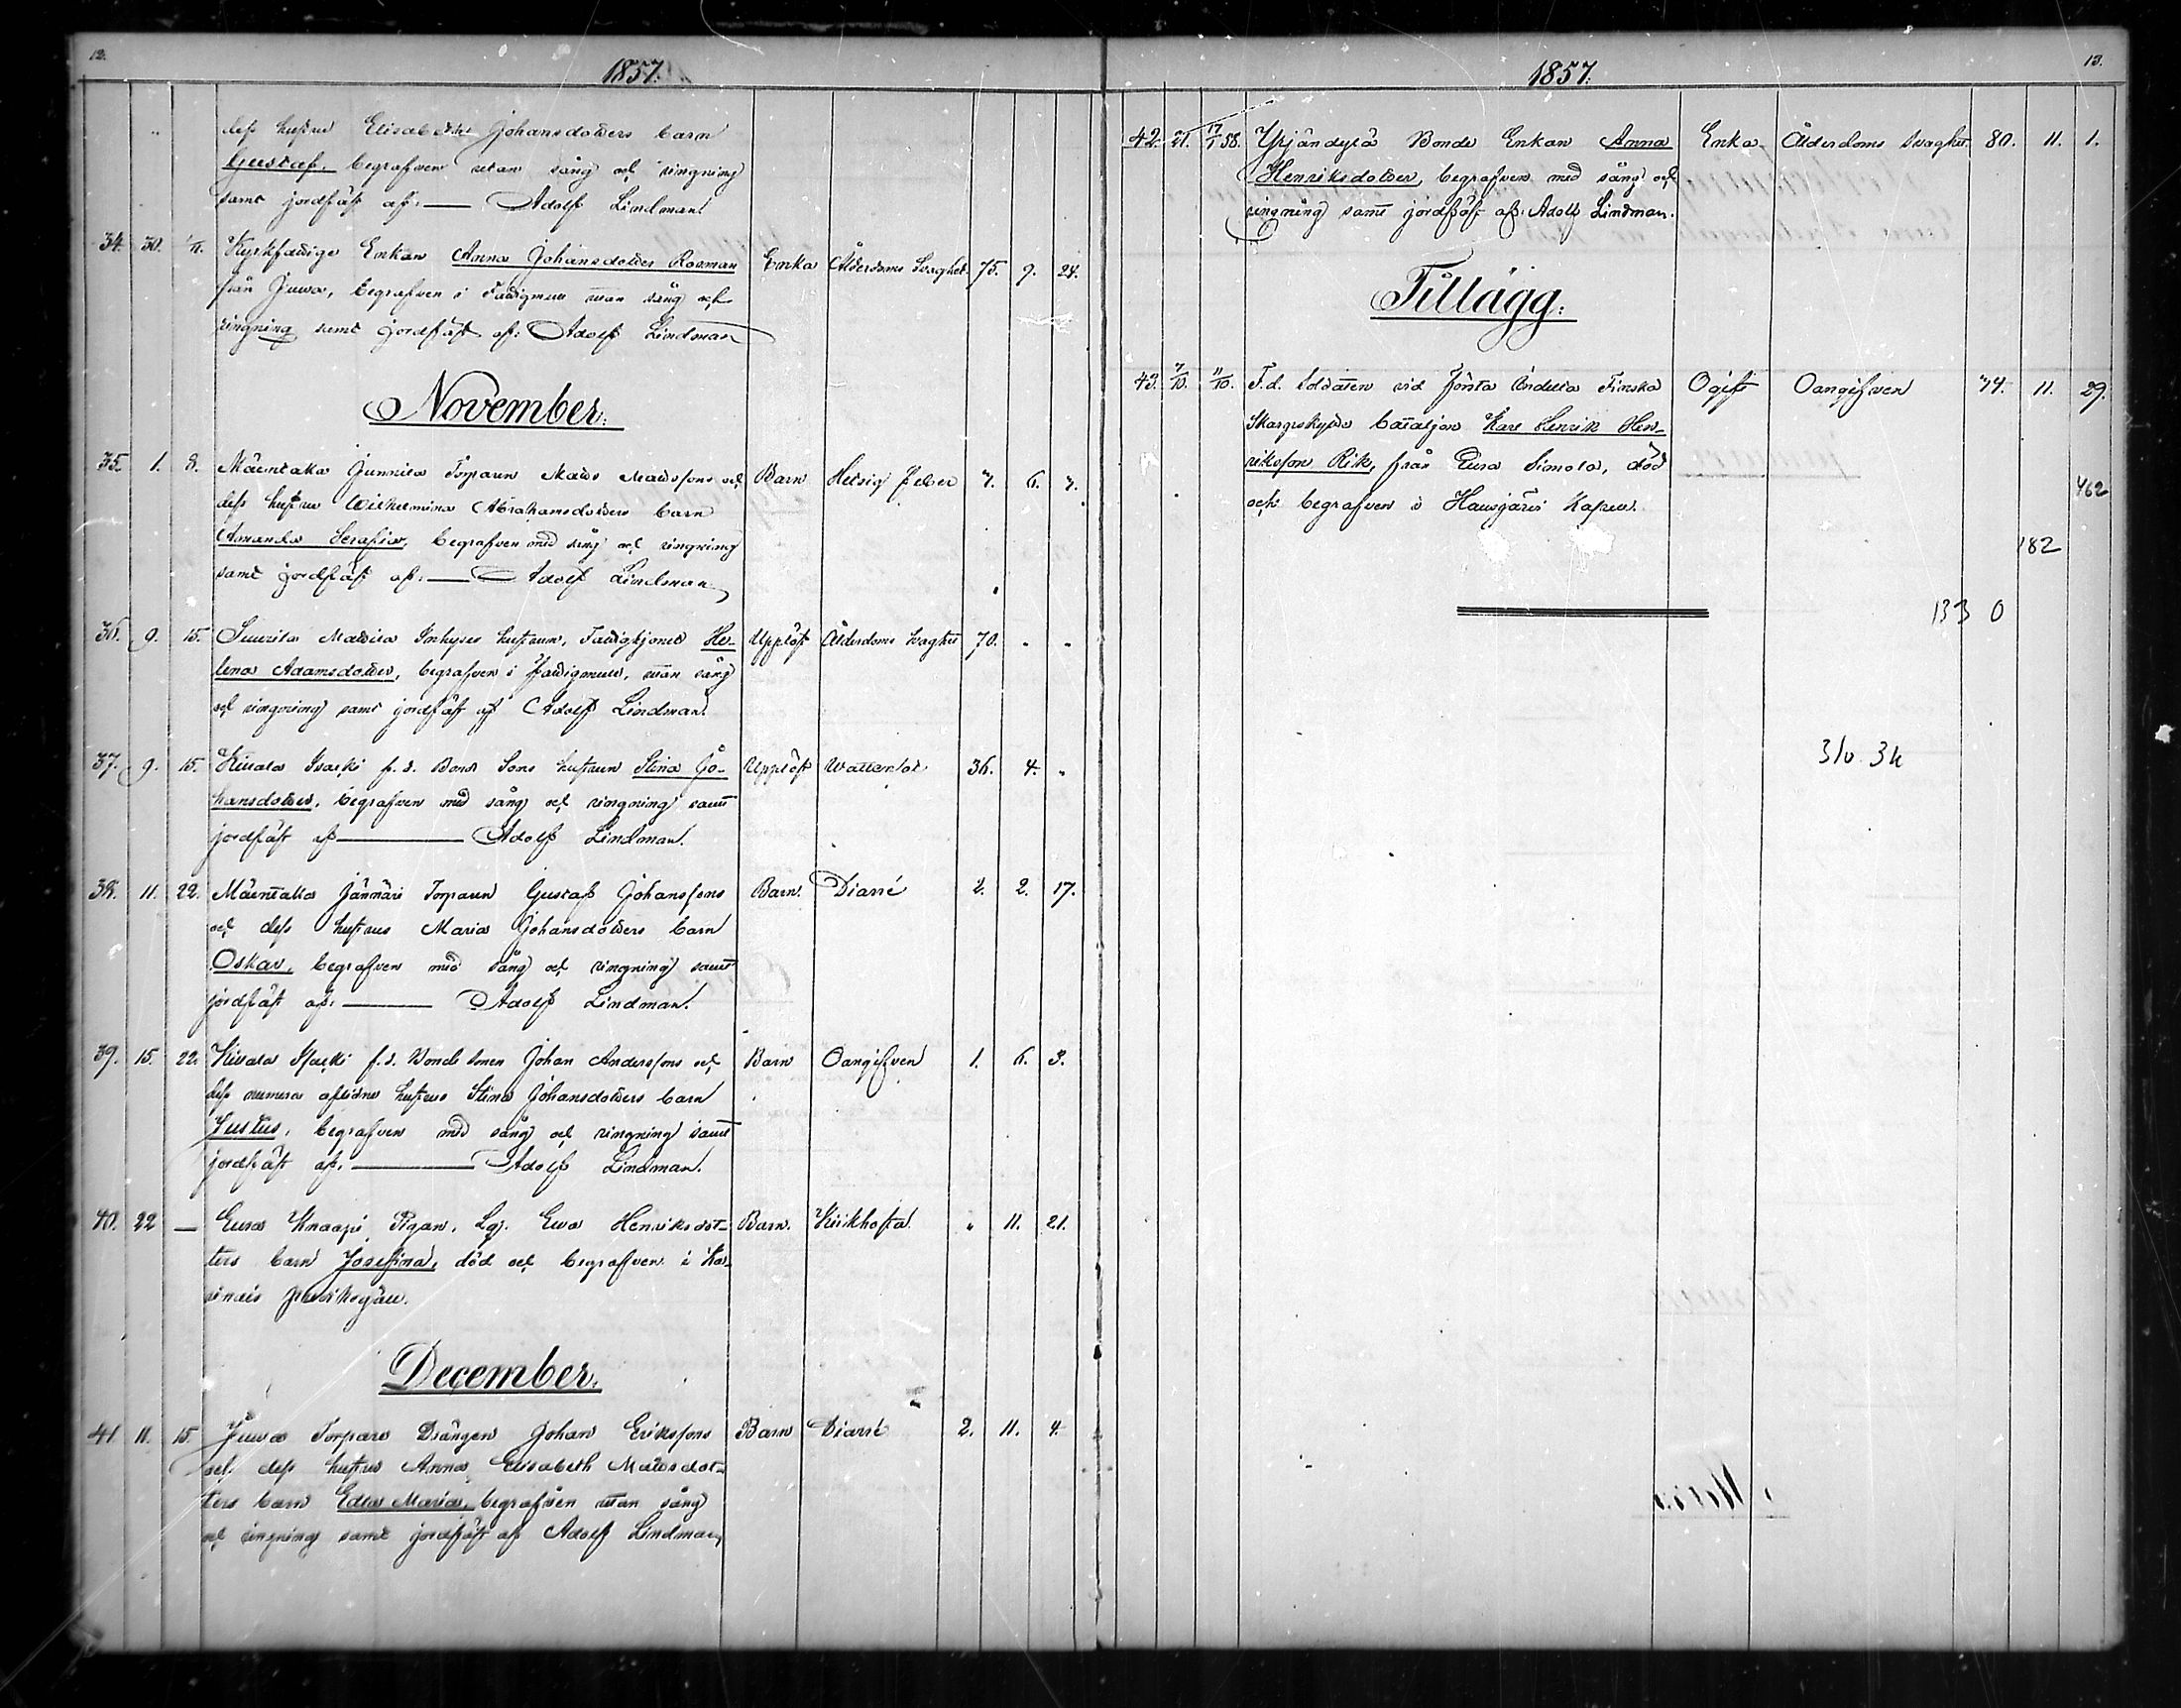 12.
1857.
dess hustrus Elisabeths Johansdotters barn
Gustaf, begrafven utan sång och ringning
samt jordfäst af: — Adolf Lindman.
34. 30. 1/11. Kyrkfattige Enkan Anna Johansdotter Rosman Enka Ålderdoms Svaghet. 75. 9. 24.
från Juwa, begrafven i Fattigmull utan sång och
ringning samt jordfäst af: Adolf Lindman
November.
35. 1. 8. Mäentaka Junnila Torparen Matts Mattssons och Barn Hetsig feber 7. 6. 7.
dess hustrus Wilhelmina Abrahamsdotters barn
Amanda Serafia, begrafven med sång och ringning
samt jordfäst af: — Adolf Lindman
36. 9. 15. Suurila Mattila Inhyses hustrun, Fattighjonet He- Upplöst Ålderdoms svaghet 70. " "
lena Adamsdotter, begrafven i fattigmull, utan sång
och ringning samt jordfäst af Adolf Lindman.
37. 9. 15. Kiuala Isacki f.d. Bonde Sons hustrun Stina Jo- Upplöst Wattensot 36. 4. "
hansdotter, begrafven med sång och ringning samt
jordfäst af — Adolf Lindman.
38. 11. 22. Mäentaka Jänmäri Torparen Gustaf Johanssons Barn. Diarré 2. 2. 17.
och dess hustrus Maria Johansdotters barn
Oskar, begrafven med sång och ringning samt
jordfäst af: — Adolf Lindman.
39. 15. 22. Kiuala Isacki f.d. Bonde Sonen Johan Anderssons och Barn Oangifven 1. 6. 3.
dess numera aflidne hustrus Stina Johansdotters barn
Justus, begrafven med sång och ringning samt
jordfäst af: — Adolf Lindman.
40. 22 — Eura Knaapi Pigan, Lgj. Ewa Henriksdot- Barn. Kikhosta " 11. 21.
ters barn Josefina, död och begrafven i
December.
41. 11. 15. Juwa Torpare Drängen Johan Erikssons Barn Diarré 2. 11. 4.
och dess hustrus Anna Elisabeth Mattsdot-
ters barn Edla Maria, begrafven utan sång
och ringning samt jordfäst af Adolf Lindman
13.
1857.
42. 21. 17/1 58. Yrjändylä Bonde Enkan Anna Enka Ålderdoms svaghet 80. 11. 1.
Henriksdotter, begrafven med sång och
ringning samt jordfäst af: Adolf Lindman.
Tillägg:
43. 7/10. 11/10. F.d. Soldaten vid Första Indelta Finska Ogift Oangifven 34. 11. 29.
Skarpskytte bataljon Karl Henrik Hen-
riksson Rik, från Eura Simola, död
och begrafven i Hausjärvi Kapell.
462
182
133 0